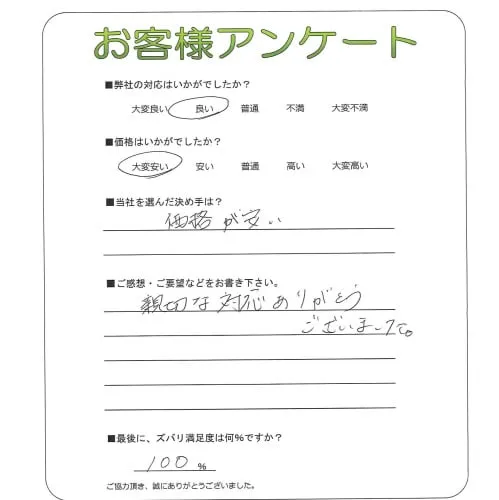 お客様アンケート
■弊社の対応はいかがでしたか？
大変良い 良い 普通 不満 大変不満
■価格はいかがでしたか？
大変安い 安い 普通 高い 大変高い
■当社を選んだ決め手は？
価格が安い
■ご感想・ご要望などをお書き下さい。
親切な対応ありがとう
ございました。
■最後に、ズバリ満足度は何%ですか？
100 %
ご協力頂き、誠にありがとうございました。